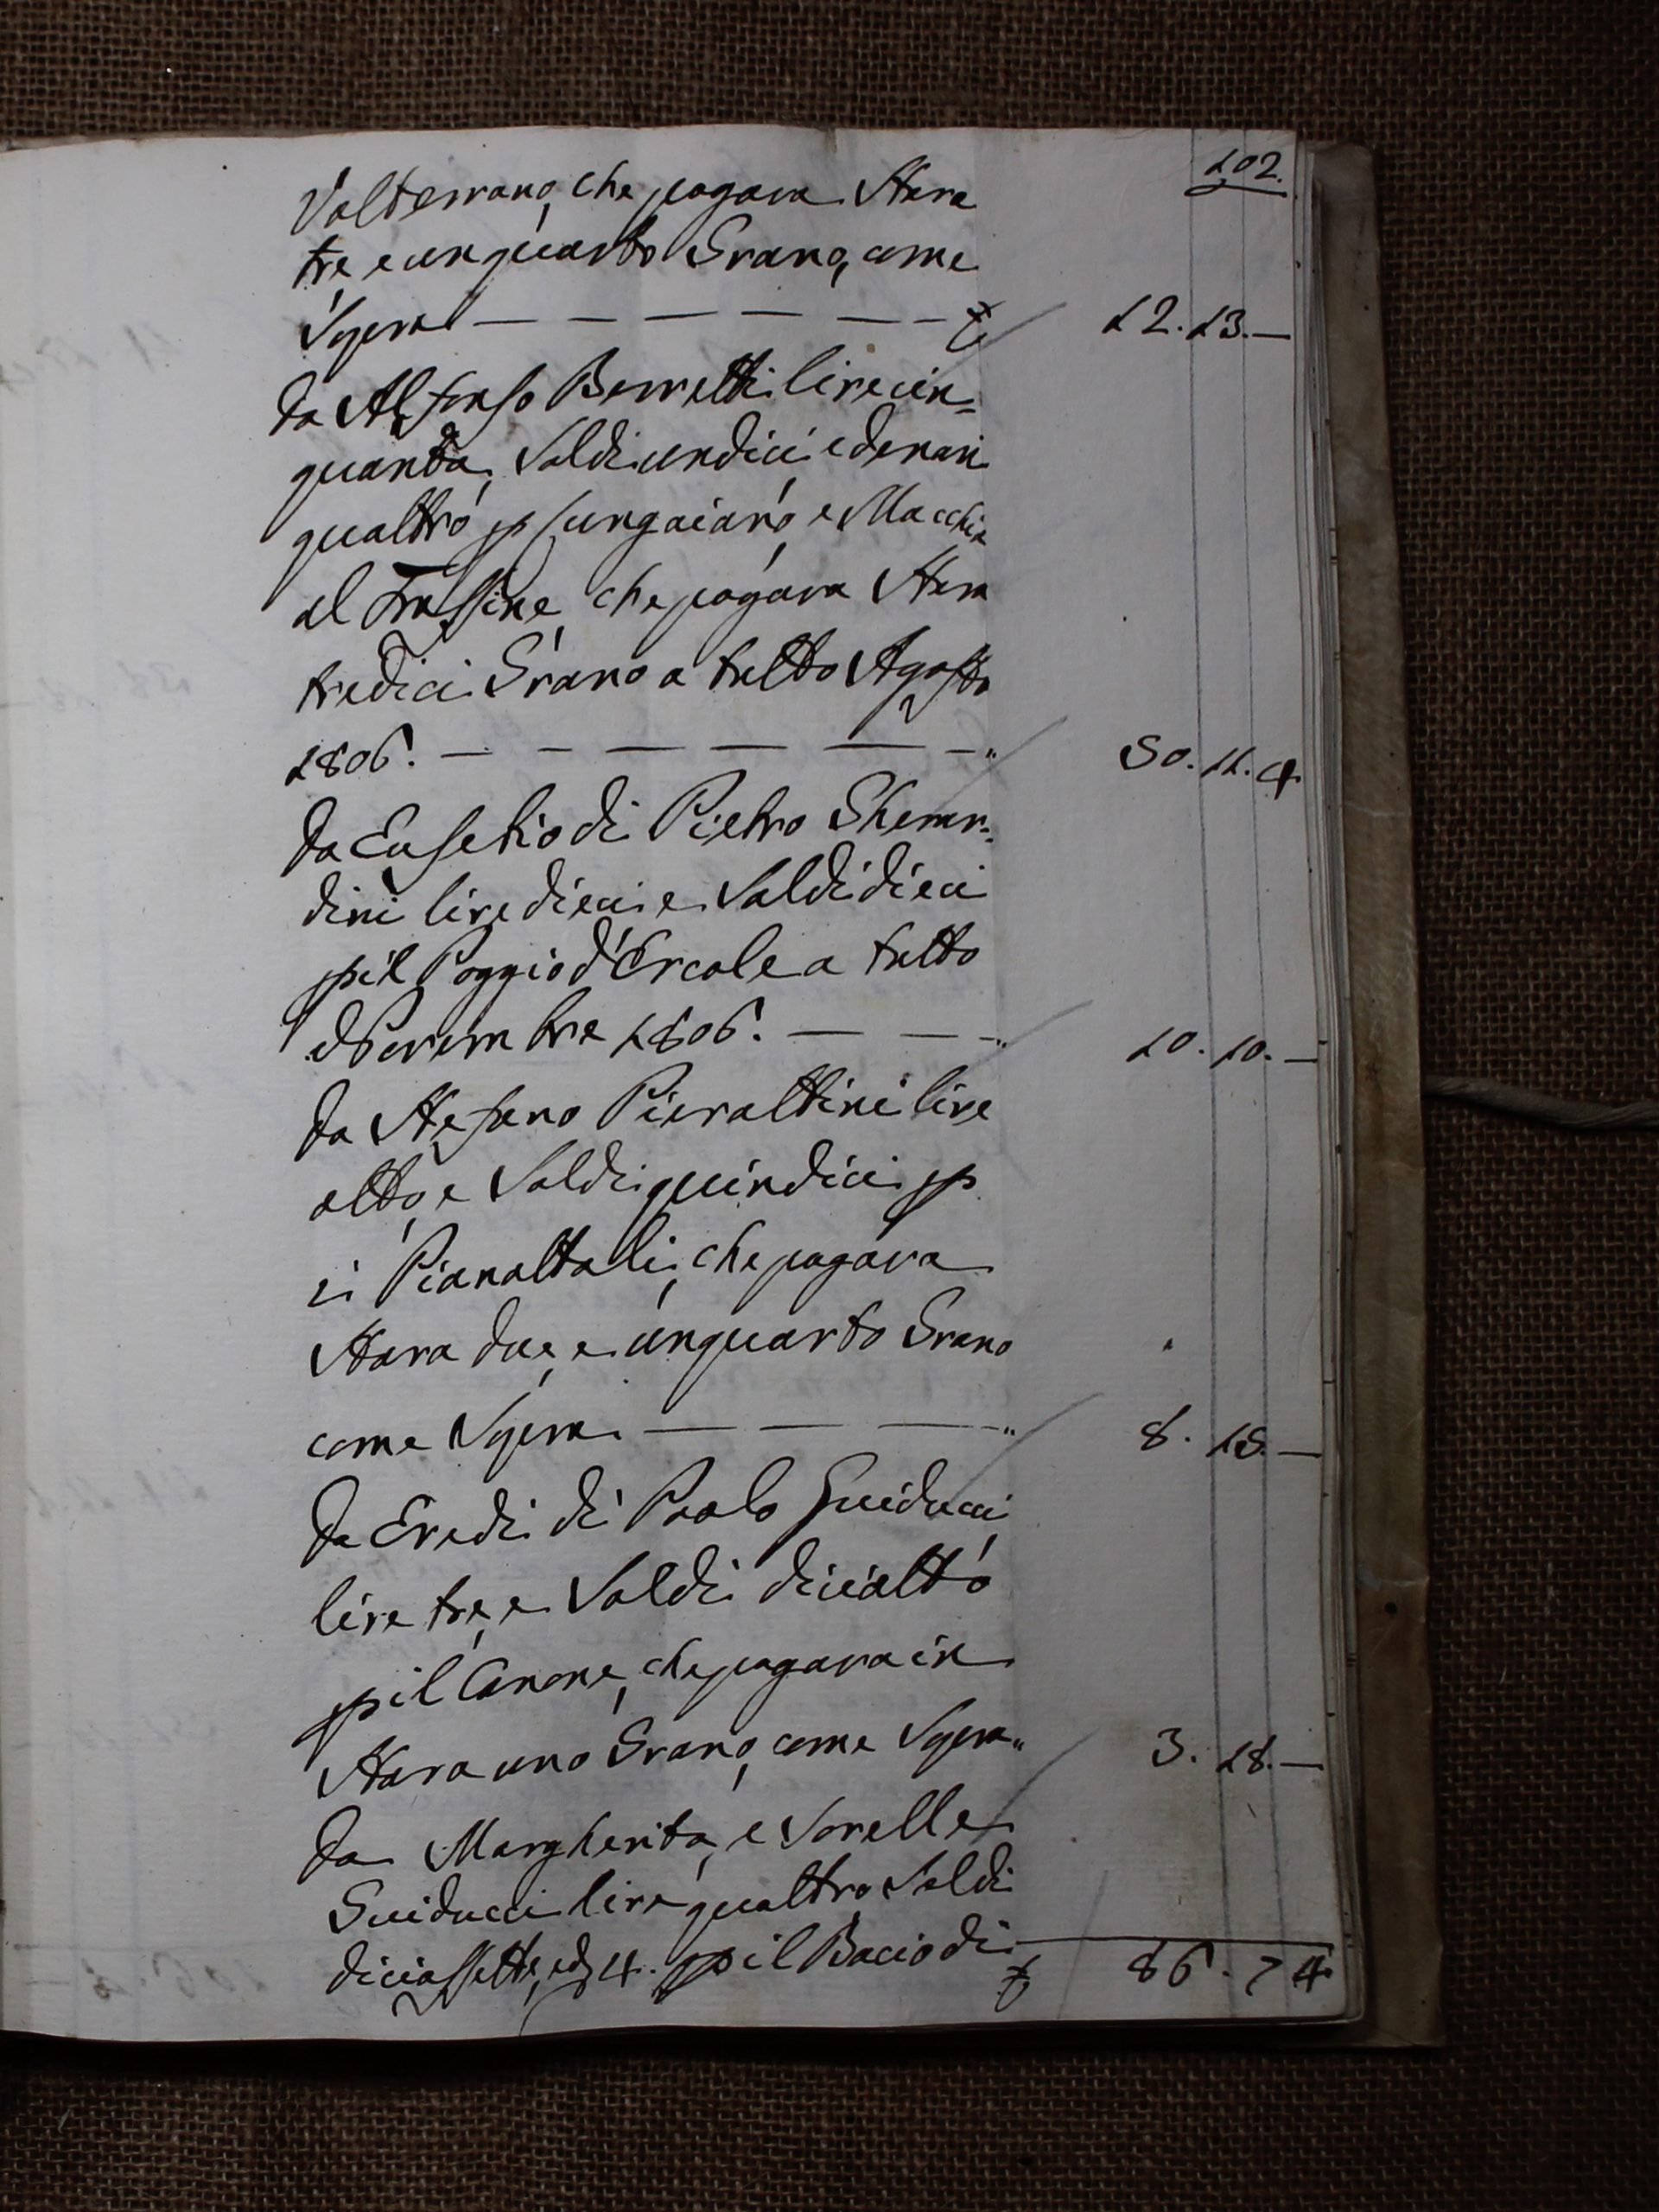 102.
Valterrano, che pagava Stara
tre, e un quarto Grano, come
Sopra £ 12.13.—
Da Alfonso Berretti lire cin=
quanta, Soldi undici e denari
quattro p Sungaiano, e Macchia
al Frassine, che pagava Stara
tredici Grano a tutto Agosto
1806. — — — — — — " 50.11.4
Da Eusebio di Pietro Gherar=
dini lire dieci, e Soldi dieci
p il Poggio d'Ercole a tutto
Novembre 1806. — — — " 10.10.—
Da Stefano Pierattini lire
otto, e Soldi quindici p
i Pianattoli, che pagava
Stara due, e un quarto Grano
come Sopra. — — — " 8.15.—
Da Eredi di Paolo Guiducci
lire tre, e Soldi diciotto
p il Canone, che pagava in
Stara uno Grano, come Sopra " 3.18.—
Da Margherita, e Sorelle
Guiducci lire quattro Soldi
diciassette, e d 4. p il Bacio di
£ 86.7 4